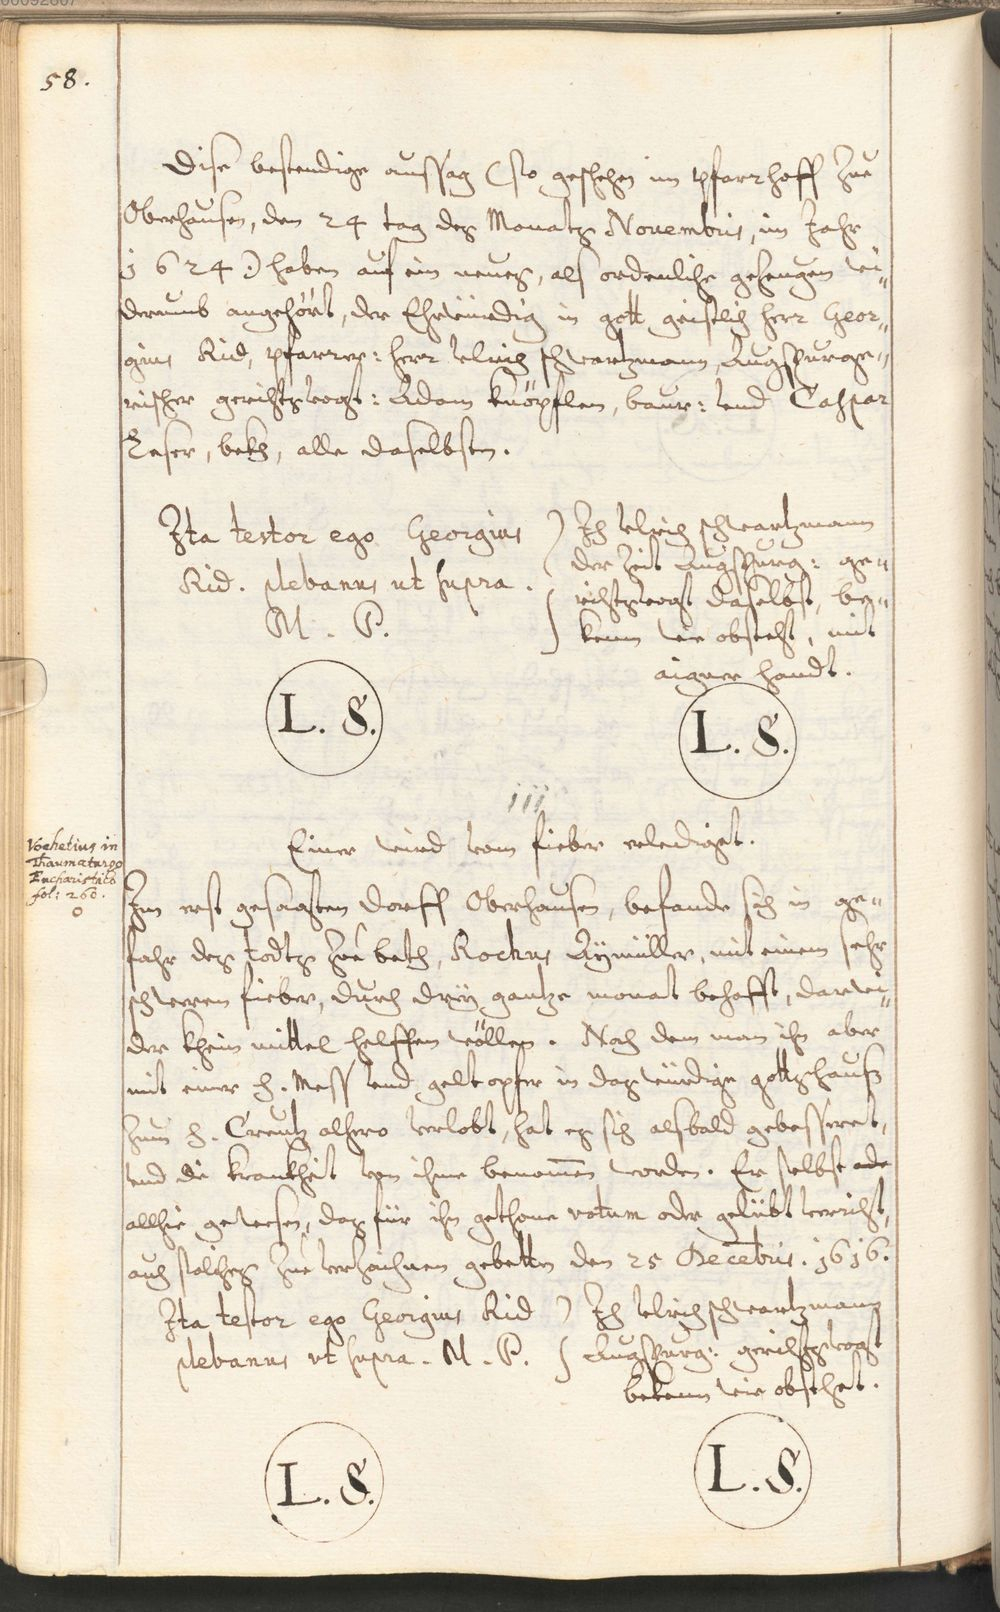 58.
Dise bestendige aussag (so geschehen im pfarrhoff zue
Oberhausen, den 24 tag des Monats Novembris, im Jahr
1624.) haben auf ein neues, als ordenliche gezeugen wi„
derumb angehört, der Ehrwürdig in gott geistlich herr Geor„
gius Rid, pfarrer: herr Ulrich schwartzmann, Augspurge„
rischer gerichtsvogt: Adam knöpflen, baur: und Caspar
Leser, bekh, alle daselbsten.
Ita testor ego Georgius
Rid. plebanus ut supra.
M. P.
Ich Ulrich schwartzmann
der Zeit Augspurg: ge„
richtsvogt daselbst, be„
kenn wie obsteht, mit
aigner handt.
L. S.
L. S.
iii
Einer wird vom fieber erlediget.
Vochetius in
Thaumaturgo
Eucharistico
fol: 260.
Im erst gesagten dorff Oberhausen, befande sich in ge„
fahr des todts zue beth, Rochus Aymüller, mit einem sehr
schweren fieber, durch drey gantze monat behafft, darwi„
der khein mittel helffen wöllen. Nach dem man ihn aber
mit einer h. Mess und geltopfer in das würdige gottshauss
zum h. Creutz alhero verlobt, hat es sich alsbald gebesseret,
und die krankheit von ihme benom̄en worden. Er selbst ade
allhie gewesen, das für ihn gethone votum oder gelübt verricht,
auch solches zue verzaichnen gebetten den 25 Decēbris. 1616.
Ita testor ego Georgius Rid
plebanus ut supra. M. P.
Ich Ulrich schwartzmann
Augspurg: gerichtsvogt
bekenn wie obsthet.
L. S.
L. S.